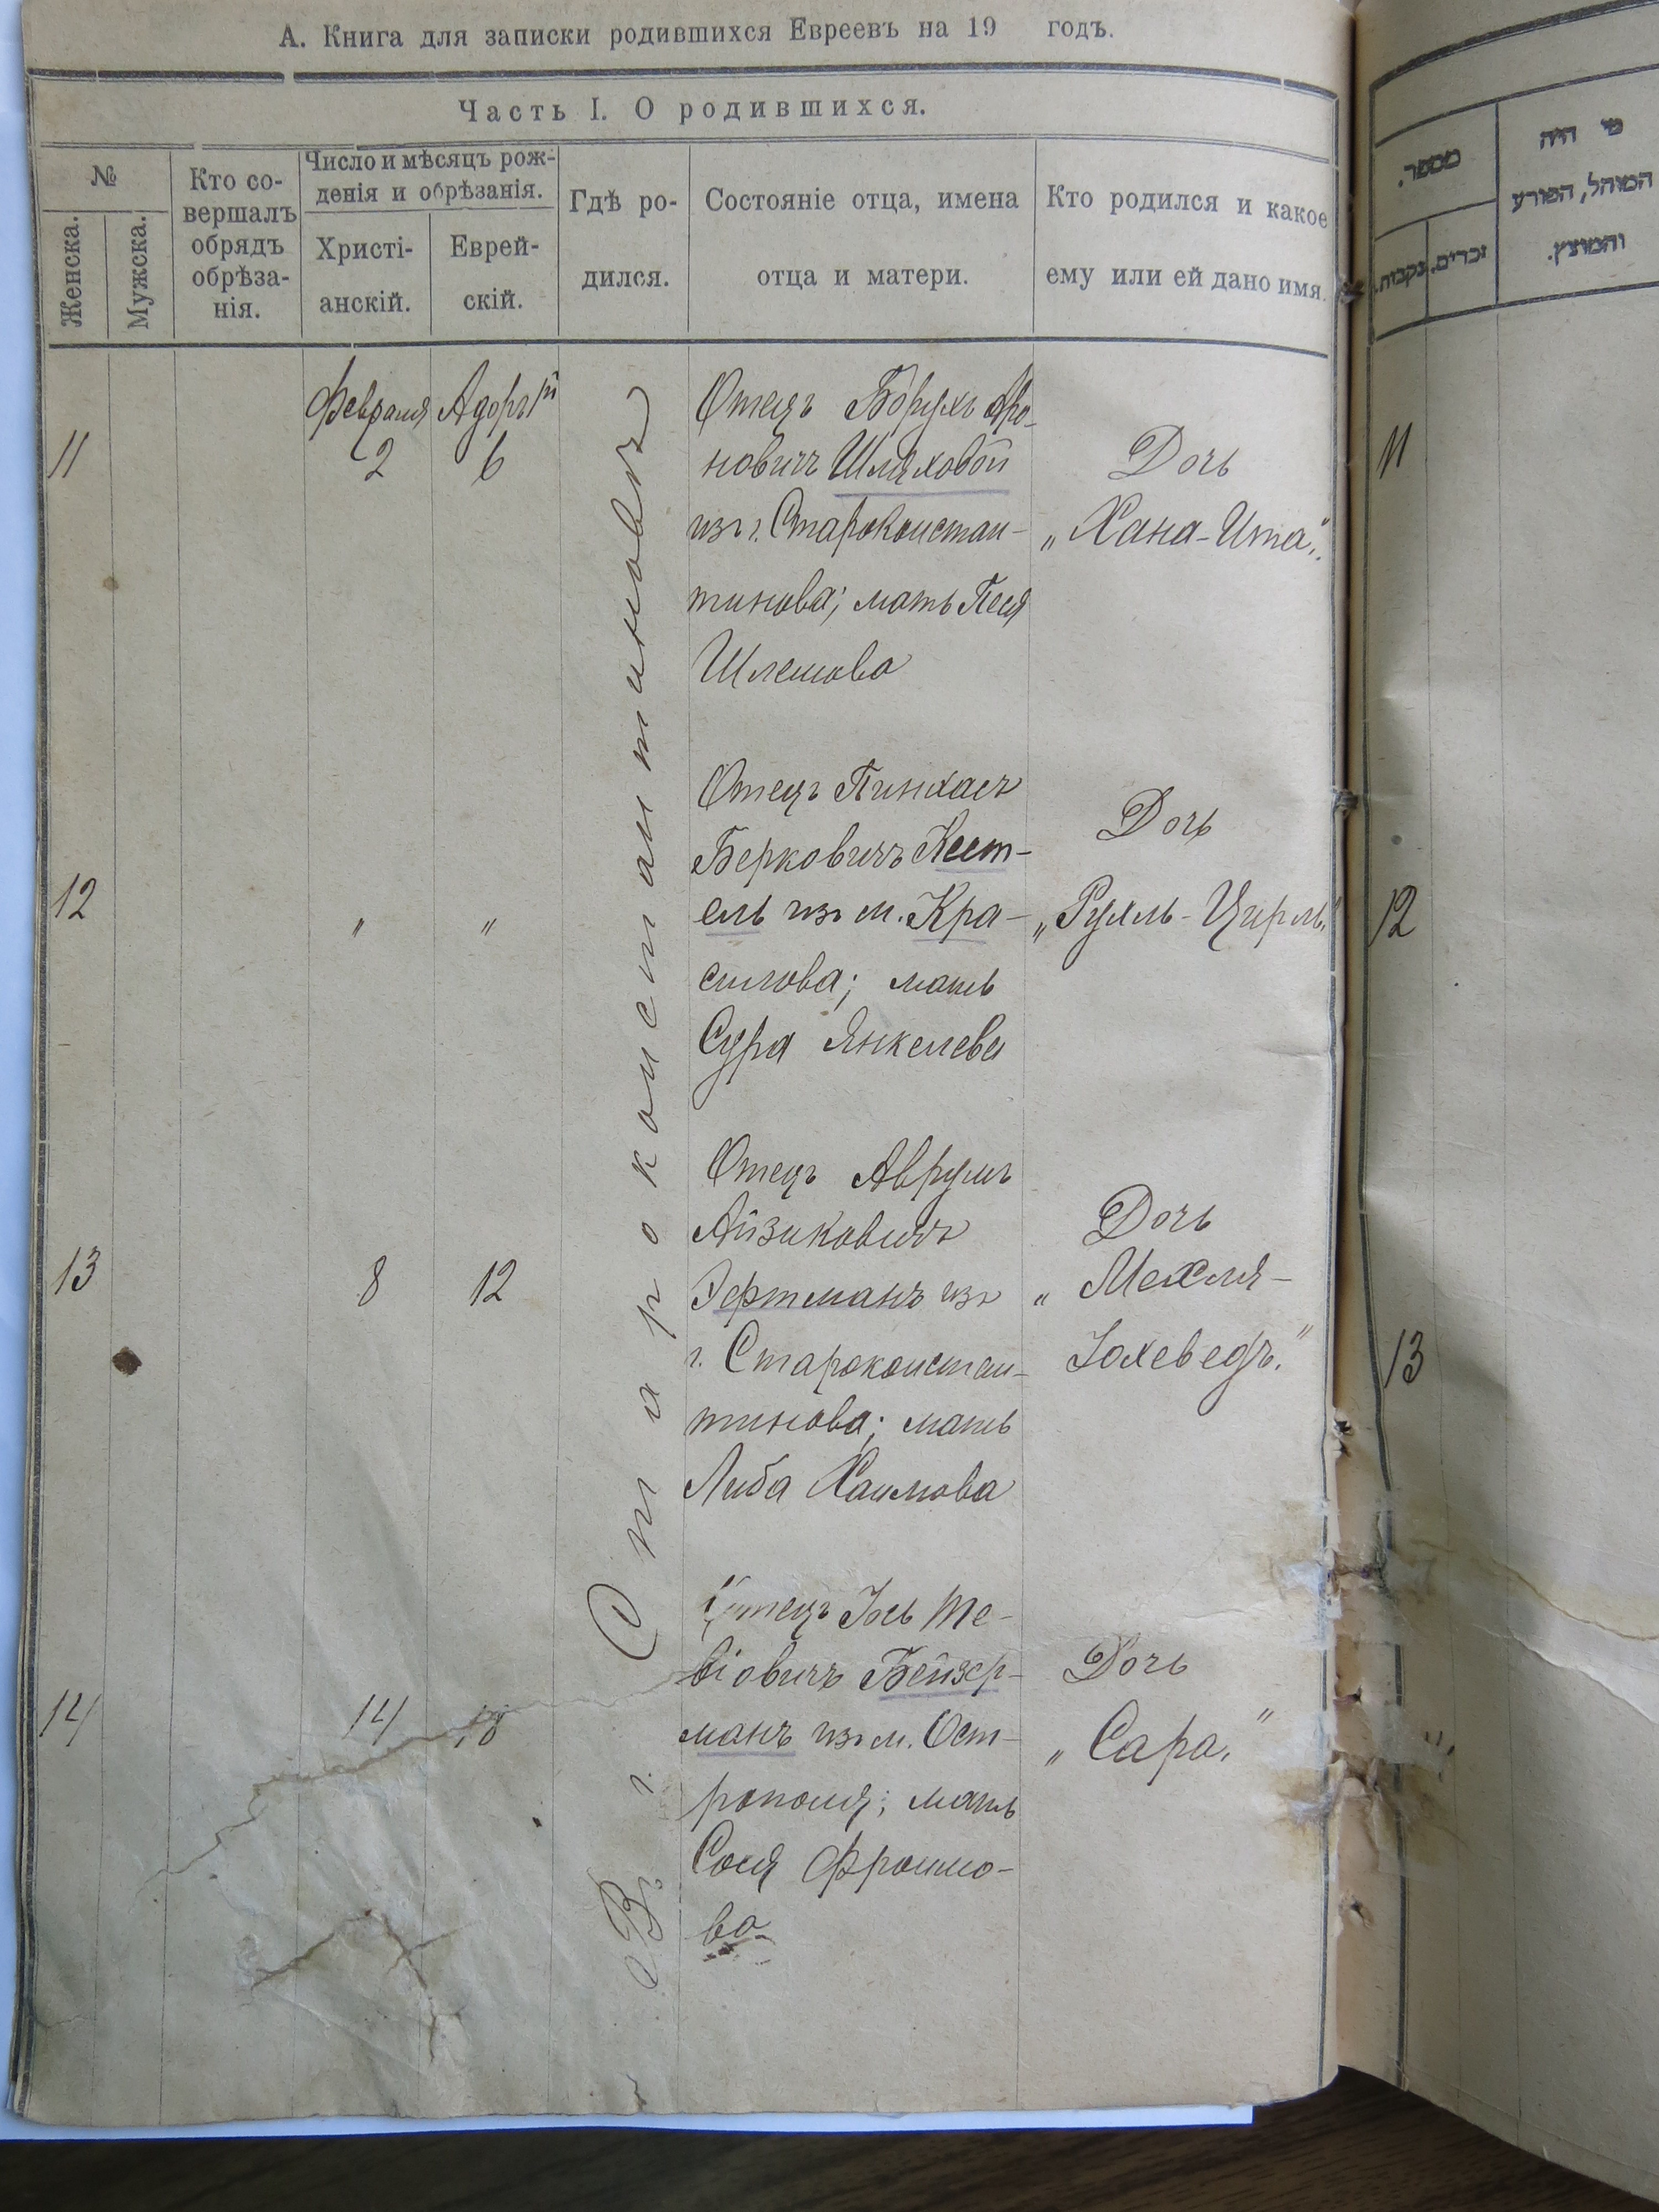 А. Книга для записки родившихся Евреевъ на 19 годъ.
Часть I. О родившихся.
№
Женска.
Мужска.
Кто со-
вершалъ
обрядъ
обрѣза-
нія.
Число и мѣсяцъ рож-
денія и обрѣзанія.
Христі-
анскій.
Еврей-
скій.
Гдѣ ро-
дился.
Состояніе отца, имена
отца и матери.
Кто родился и какое
ему или ей дано имя.
Въ г. Староконстантиновѣ
11
Февраля
2
6
Отецъ Борухъ Аро-
новичъ Шляховой
изъ г. Староконстан-
тинова; мать Песя
Шлемова
Дочь
„Хана-Ита".
12
"
"
Отецъ Пинхасъ
Берковичъ Кест-
ель изъ м. Кра-
силова; мать
Сура Янкелева
Дочь
„Рухль-Цирль"
13
8
12
Отецъ Аврумъ
Айзиковичъ
Эфтманъ изъ
г. Староконстан-
тинова; мать
Либа Хаимова
Дочь
„Мехля-
Іохеведъ."
14
14
18
Отецъ Іось Те-
віовичъ Бейзер-
манъ изъ м. Ост-
рополя; мать
Сося Фроимо-
ва
Дочь
„Сара."
מספר.
נקבות.
זכרים.
מי היה
המוהל, הפורע
והמוצץ.
11
12
13